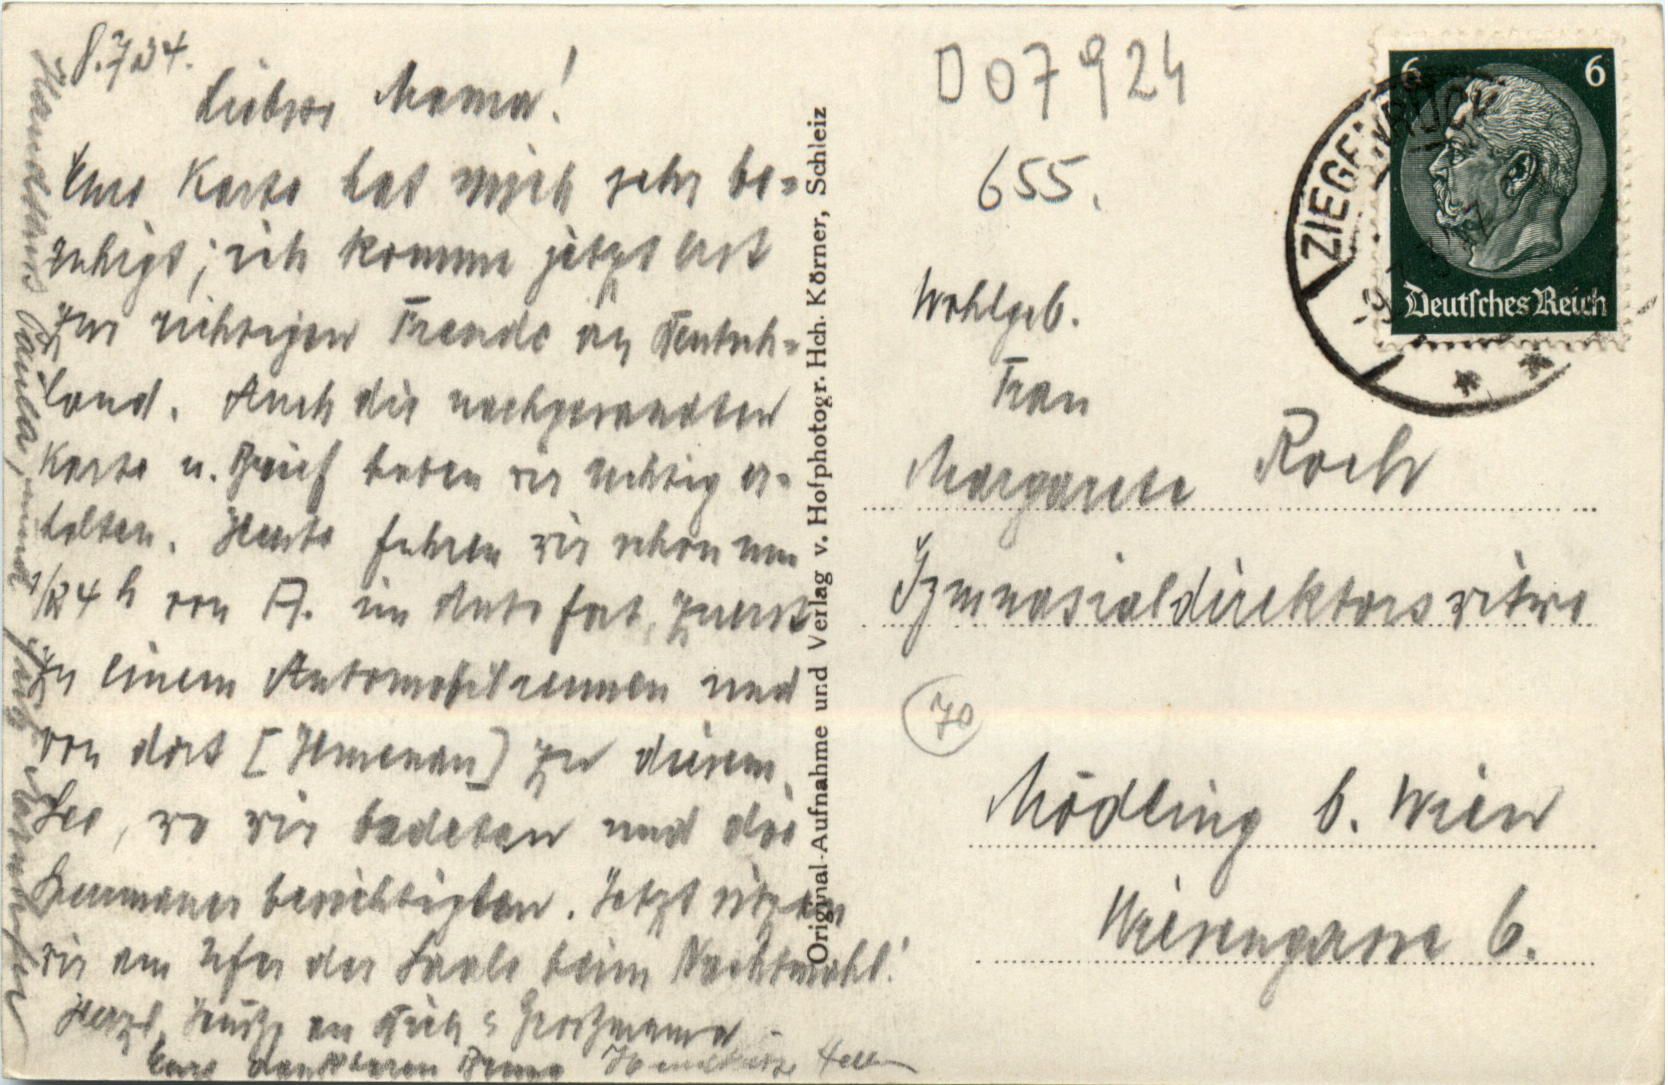 8.7.34.
Liebste Mama!
Eure Karte hat mich sehr be-
ruhigt; ich komme jetzt erst
zur richtigen Freude an Deutsch-
land. Auch die nachgesandten
Karte u. Brief haben wir richtig er-
halten. Heute fuhren wir schon um
1/2 4 h von A. im Auto fort, zuerst
zu einem Automobilrennen und
von dort [Ilmenau] zu diesem
See, wo wir badeten und die
Sperrmauer besichtigten. Jetzt sitzen
wir am Ufer der Saale beim Nachtmahl!
Herzl. Grüße an Dich u Großmama
Eure dankbaren Handküsse
Handkuss Paula, und
Original-Aufnahme und Verlag v. Hofphotogr. Hch. Körner, Schleiz
D 07924
655.
6 6
Deutsches Reich
ZIEGENRÜCK
Wohlgeb.
Frau
Margarete Koch
Gymnasialdirektorswitwe
70
Mödling b. Wien
Wiesengasse 6.